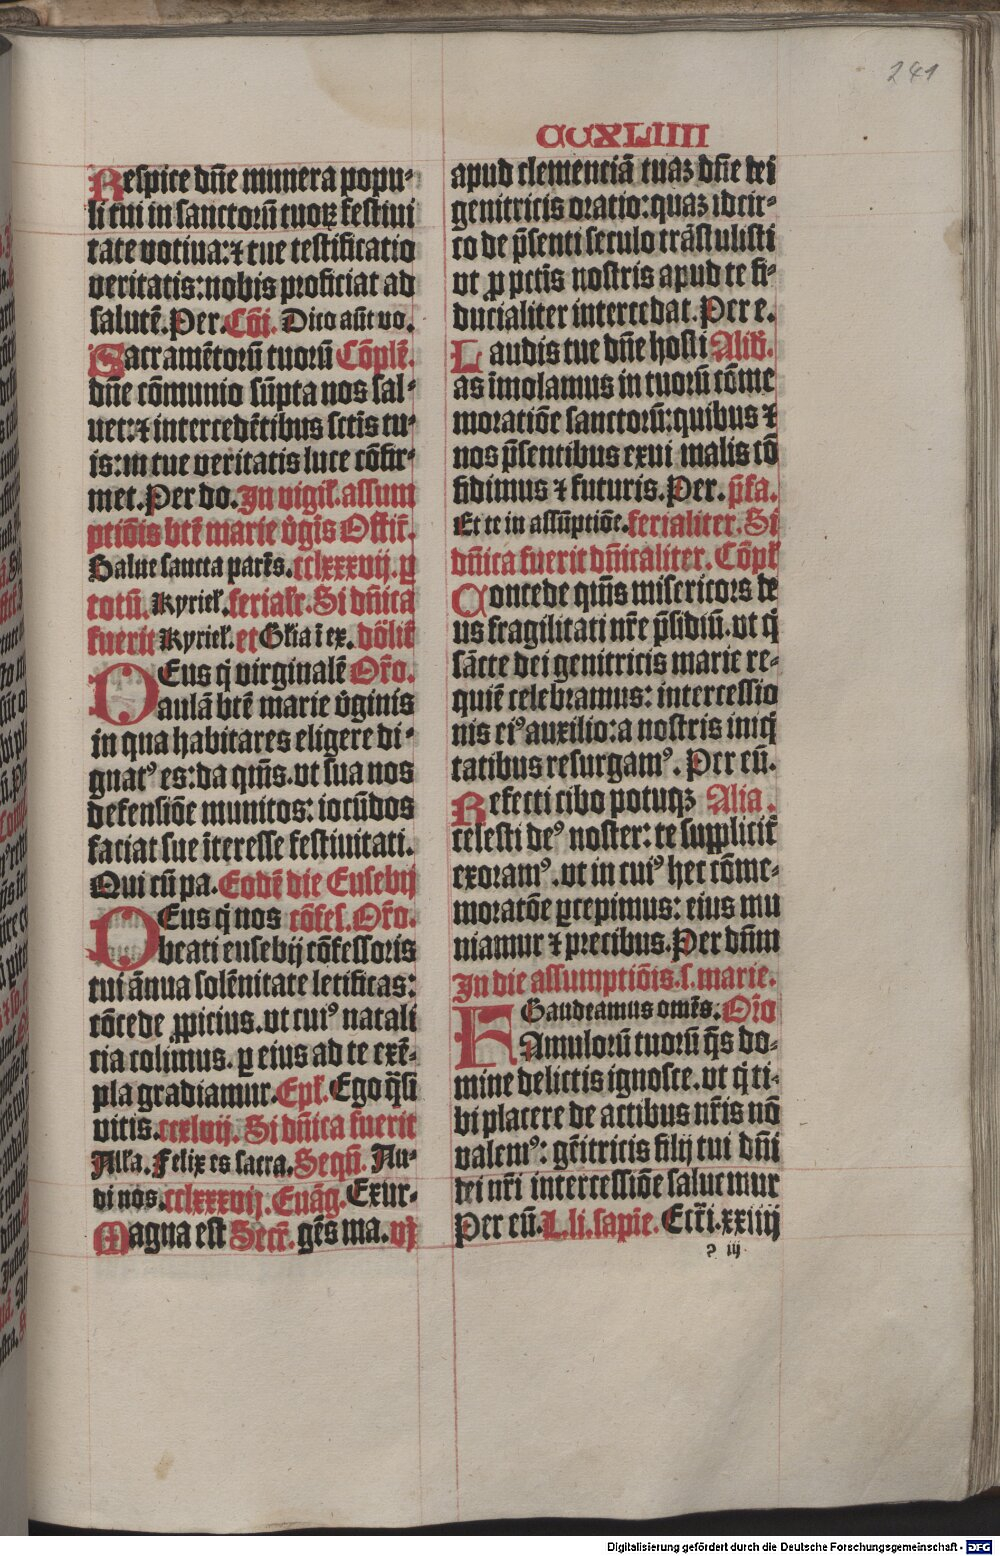 241
CCXLIIII
Respice dn̄e munera popu-
li tui in sanctorū tuoꝝ festiui
tate votiua: ⁊ tue testificatio
veritatis: nobis proficiat ad
salutē. Per. Cōi. Dico aūt vo.
Sacramētorū tuorū Cōplē.
dn̄e cōmunio sūpta nos sal-
uet: ⁊ intercedētibus sctīs tu-
is: in tue veritatis luce cōfir-
met. Per do. In vigił. assum
ptiōis btē marie v̓gīs Offīr̄.
Salue sancta parēs. cclxxxvij. ꝑ
totū. Kyrieł. ferialr̄. Si dn̄ica
fuerit Kyrieł. et Glīa ī ex. dōlir̄
DEus q̄ virginalē Or̄o.
aulā btē marie v̓ginis
in qua habitares eligere di-
gnatꝰ es: da qm̄s. vt sua nos
defensiōe munitos: iocūdos
faciat sue īteresse festiuitati.
Qui cū pa. Eodē die Eusebij
DEus q̄ nos cōfes. Or̄o.
beati eusebij cōfessoris
tui ānua solēnitate letificas:
cōcede ꝓpicius. vt cuiꝰ natali
cia colimus. ꝑ eius ad te exē-
pla gradiamur. Epł. Ego q̄si
vitis. ccxlvij. Si dn̄ica fuerit
Alła. Felix es sacra. Seqn̄. Au-
di nos. cclxxxvij. Euāg. Exur-
Magna est Secr̄. gēs ma. vj
apud clemenciā tuaꝫ dn̄e dei
genitricis oratio: quaꝫ idcir-
co de p̄senti seculo trāstulisti
vt ꝓ pctīs nostris apud te fi-
ducialiter intercedat. Per e.
Laudis tue dn̄e hosti Alib̄.
as īmolamus in tuorū cōme
moratiōe sanctorū: quibus ⁊
nos p̄sentibus exui malis cō
fidimus ⁊ futuris. Per. p̄fa.
Et te in assūptiōe. ferialiter. Si
dn̄ica fuerit dn̄icaliter. Cōpł
Concede qm̄s misericors de
us fragilitati nr̄e p̄sidiū. vt q̄
sācte dei genitricis marie re-
quiē celebramus: intercessio
nis eiꝰ auxilio: a nostris iniq̄
tatibus resurgamꝰ. Per eū.
Refecti cibo potuqꝫ Alia.
celesti deꝰ noster: te supplicit̄
exoramꝰ. vt in cuiꝰ hec cōme-
moratōe ꝑcepimus: eius mu
niamur ⁊ precibus. Per dn̄m
In die assumptiōis. s. marie.
Gaudeamus omēs. Or̄o
FAmulorū tuorū q̄s do-
mine delictis ignosce. vt q̄ ti-
bi placere de actibus nr̄is nō
valemꝰ: gēitricis filij tui dn̄i
dei nr̄i intercessiōe saluemur
Per eū. L. li. sapīe. Ecci̅. xxiiij
2 iij
Digitalisierung gefördert durch die Deutsche Forschungsgemeinschaft - DFG